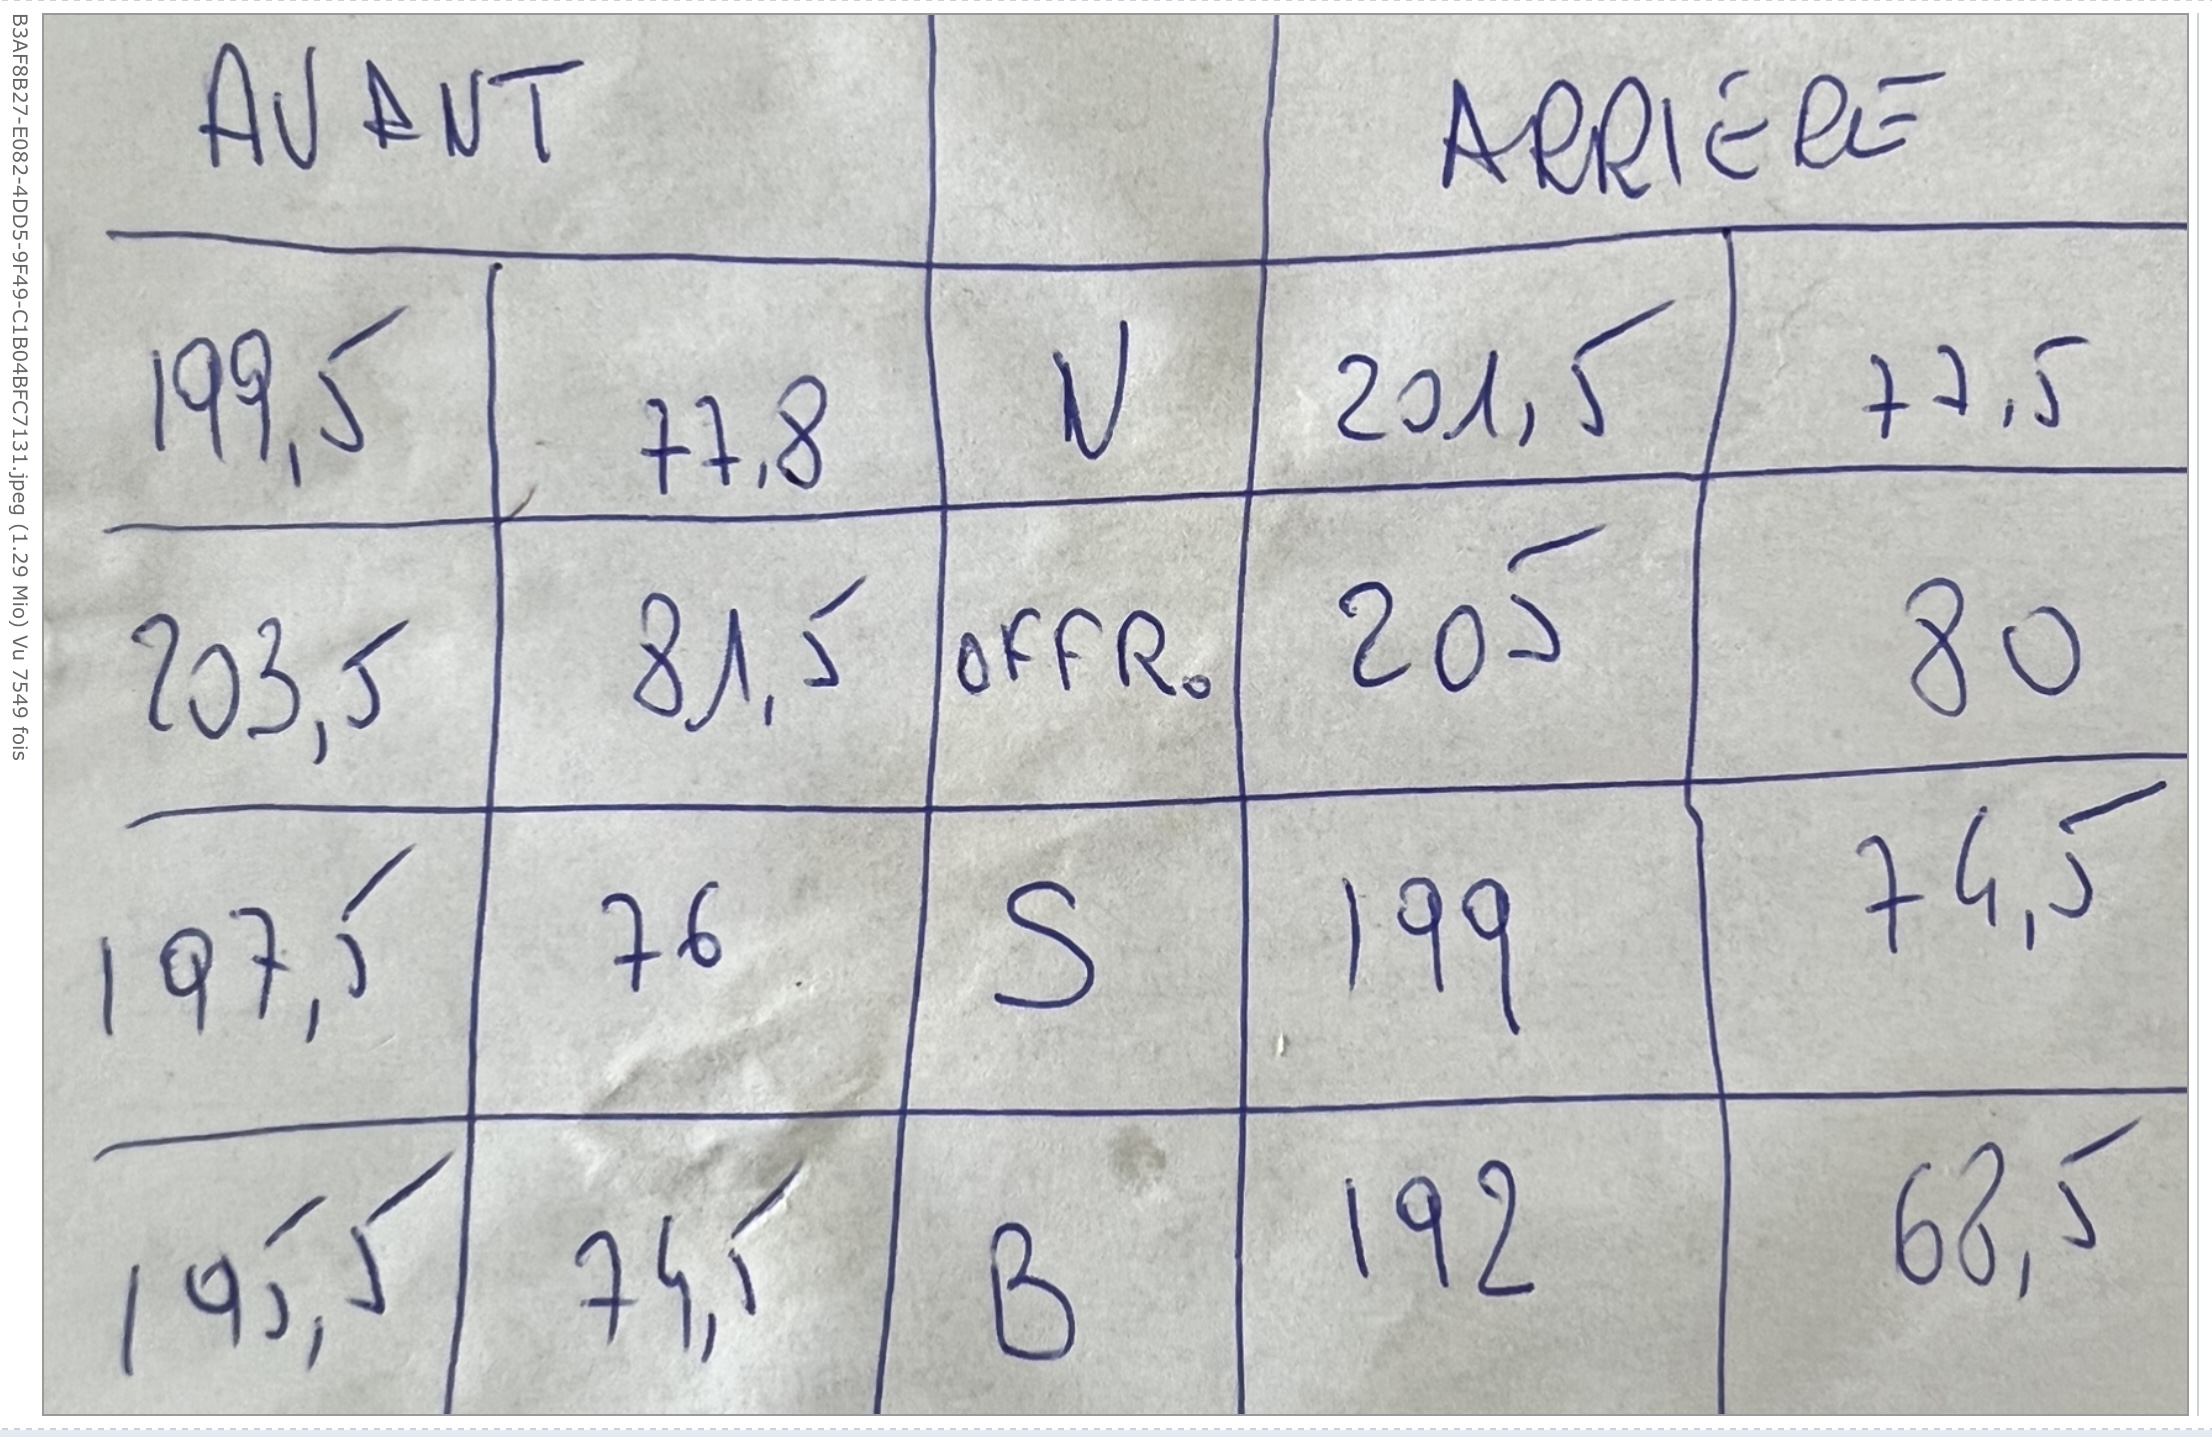 AVANT ARRIÈRE
199,5 77,8 N 201,5 77,5
203,5 81,5 OFFR. 205 80
197,5 76 S 199 74,5
195,5 74,5 B 192 68,5
B3AF8B27-E082-4DD5-9F49-C1B04BFC7131.jpeg (1.29 Mio) Vu 7549 fois